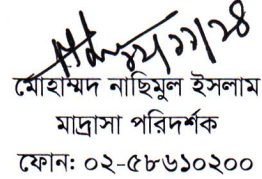 মোহাম্মদ নাছিমুল ইসলাম
মাদ্রাসা পরিদর্শক
ফোন: ০২-৫৮৬১০২০০